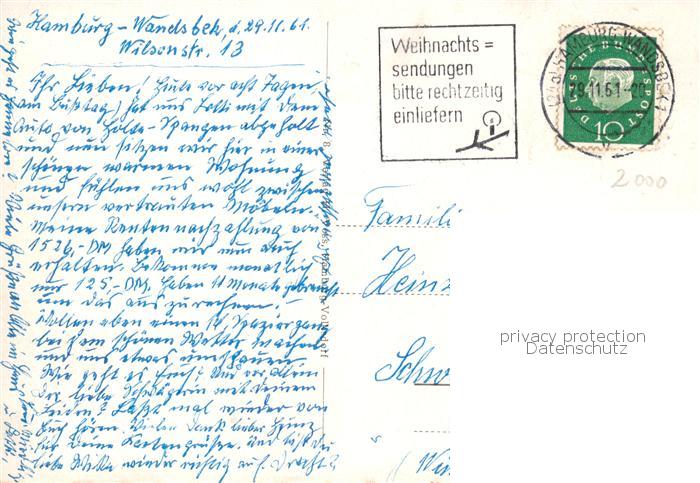 Hamburg-Wandsbek, d. 29.11.61.
Wilsonstr. 13
Ihr Lieben! Heute vor acht Tagen,
(am Bußtag) hat uns mit dem
Auto von Holte-Spangen abgeholt
und nun sitzen wir hier in einer
schönen warmen Wohnung
und fühlen uns wohl zwischen
unsern vertrauten Möbeln.
Meine Rentennachzahlung von
1526,-DM haben wir nun auch
erhalten. Bekomme monatlich
nur 125,-DM. haben 11 Monate gebraucht
um das auszurechnen. -
Wollen eben einen Spaziergang
bei dem schönen Wetter machen
und uns etwas umschauen.
Wie geht es Euch? Und vor allem
der lieben Schwägerin mit deinem
Leiden? Laßt mal wieder von
Euch hören. Vielen Dank lieber Heinz
für Deine Kartengrüße. Und bist du
liebe wieder richtig auf Draht?
Weihnachts=
sendungen
bitte rechtzeitig
einliefern
(24a) HAMBURG-WANDSBEK 1
29.11.61-20
DEUTSCHE BUNDESPOST
10
2000
Famili
Heinz
Schw
privacy protection
Datenschutz